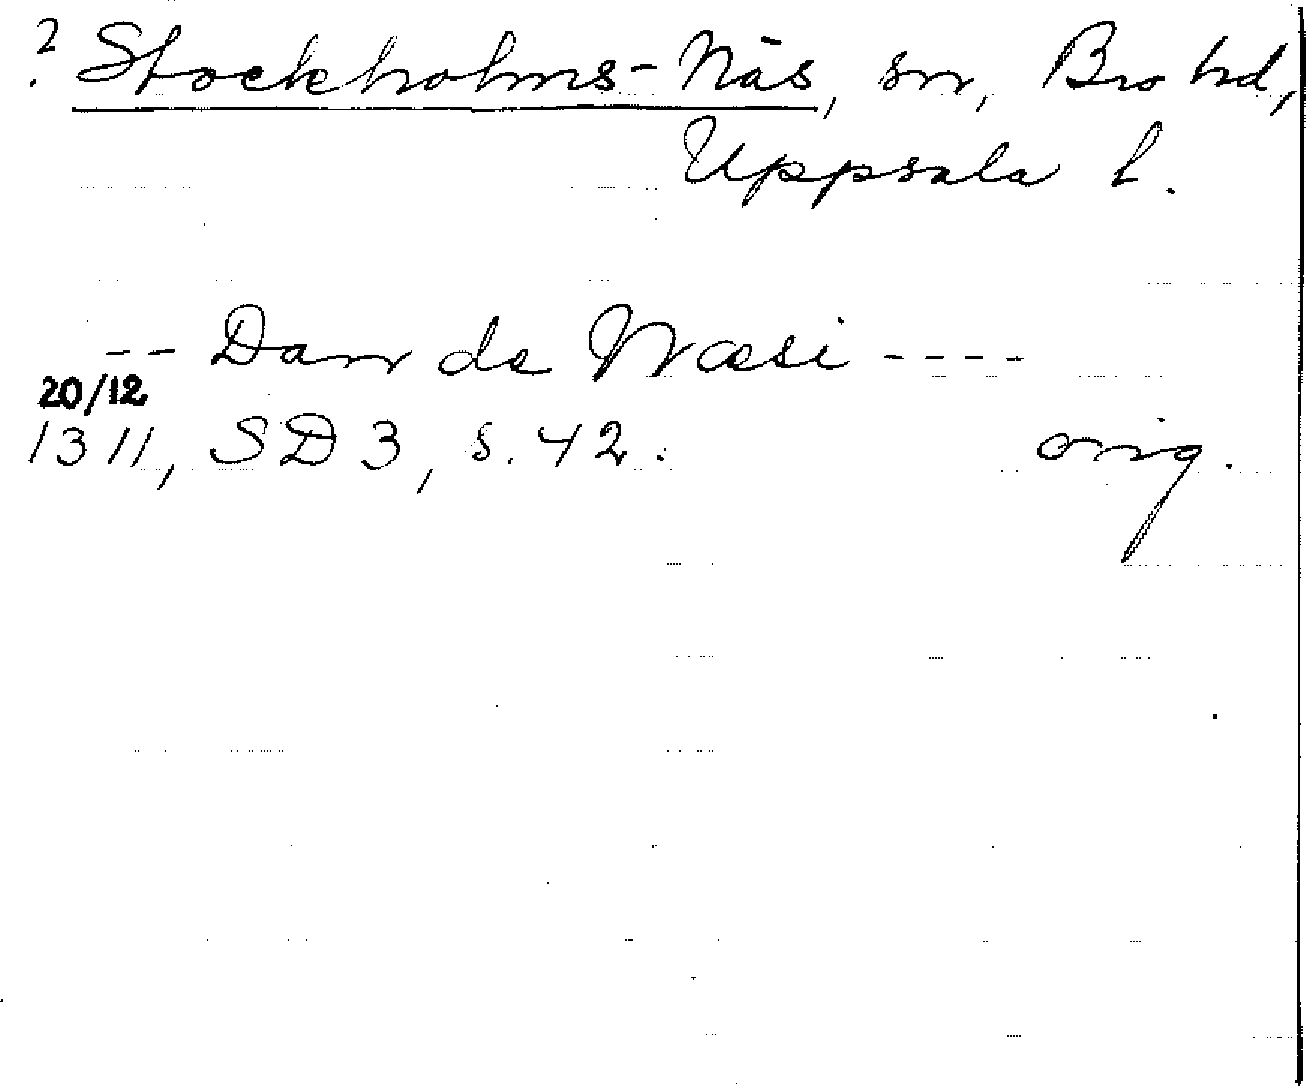 ? Stockholms-Näs, sn, Bro hd,
Uppsala l.
-- Dan de Næsi ----
20/12
1311, SD 3, s. 42. orig.